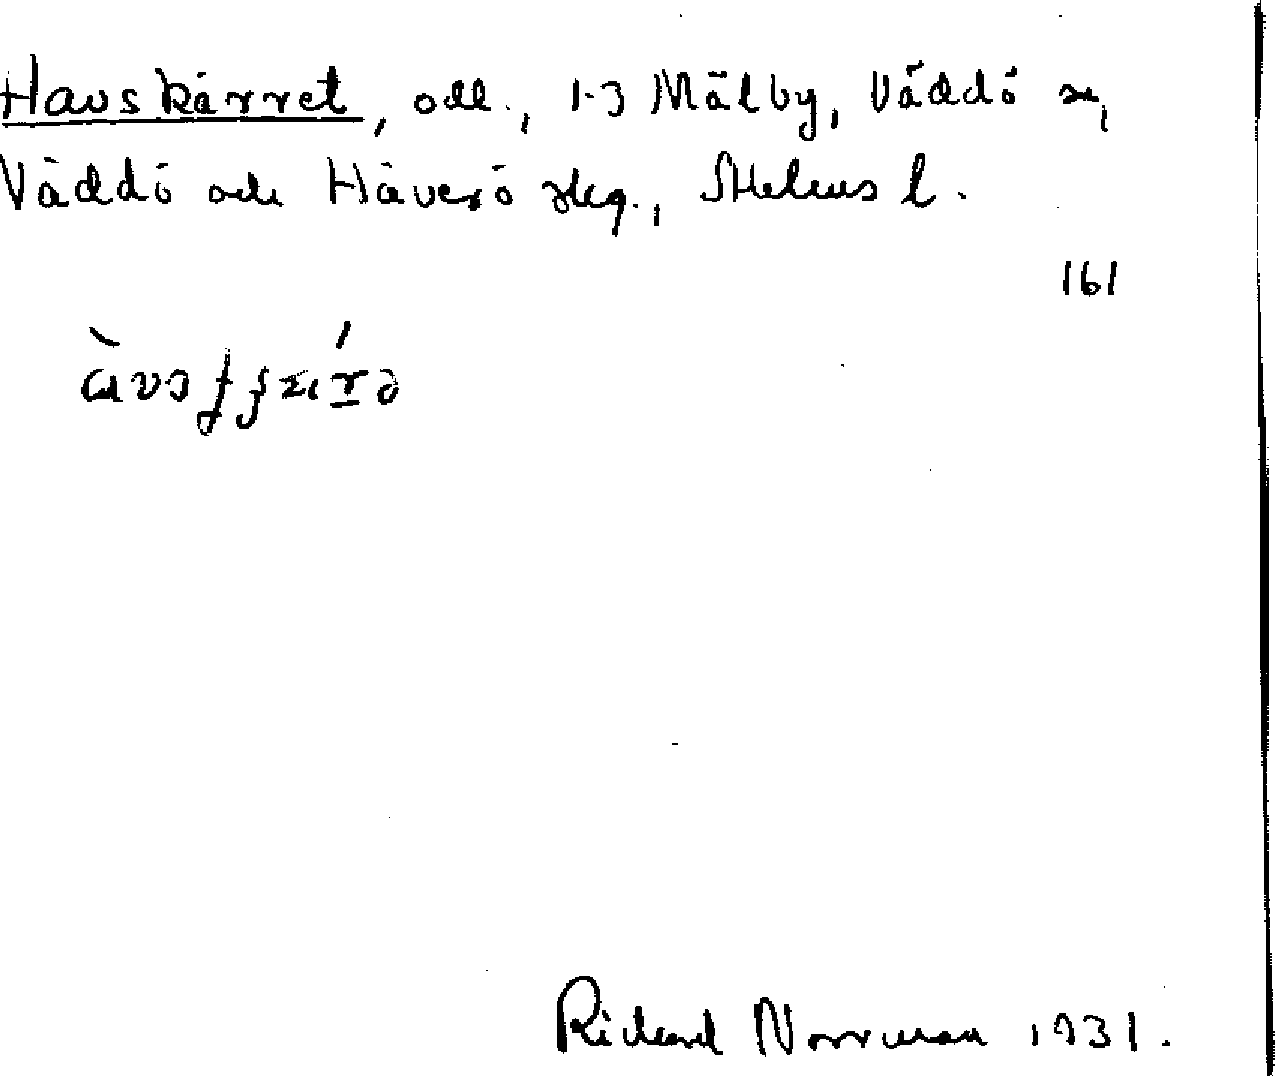 Havskärret, odl., 1-3 Mälby, Väddö sn,
Väddö och Häverö skg., Sthlms l.
161
Richard Norrman 1931.